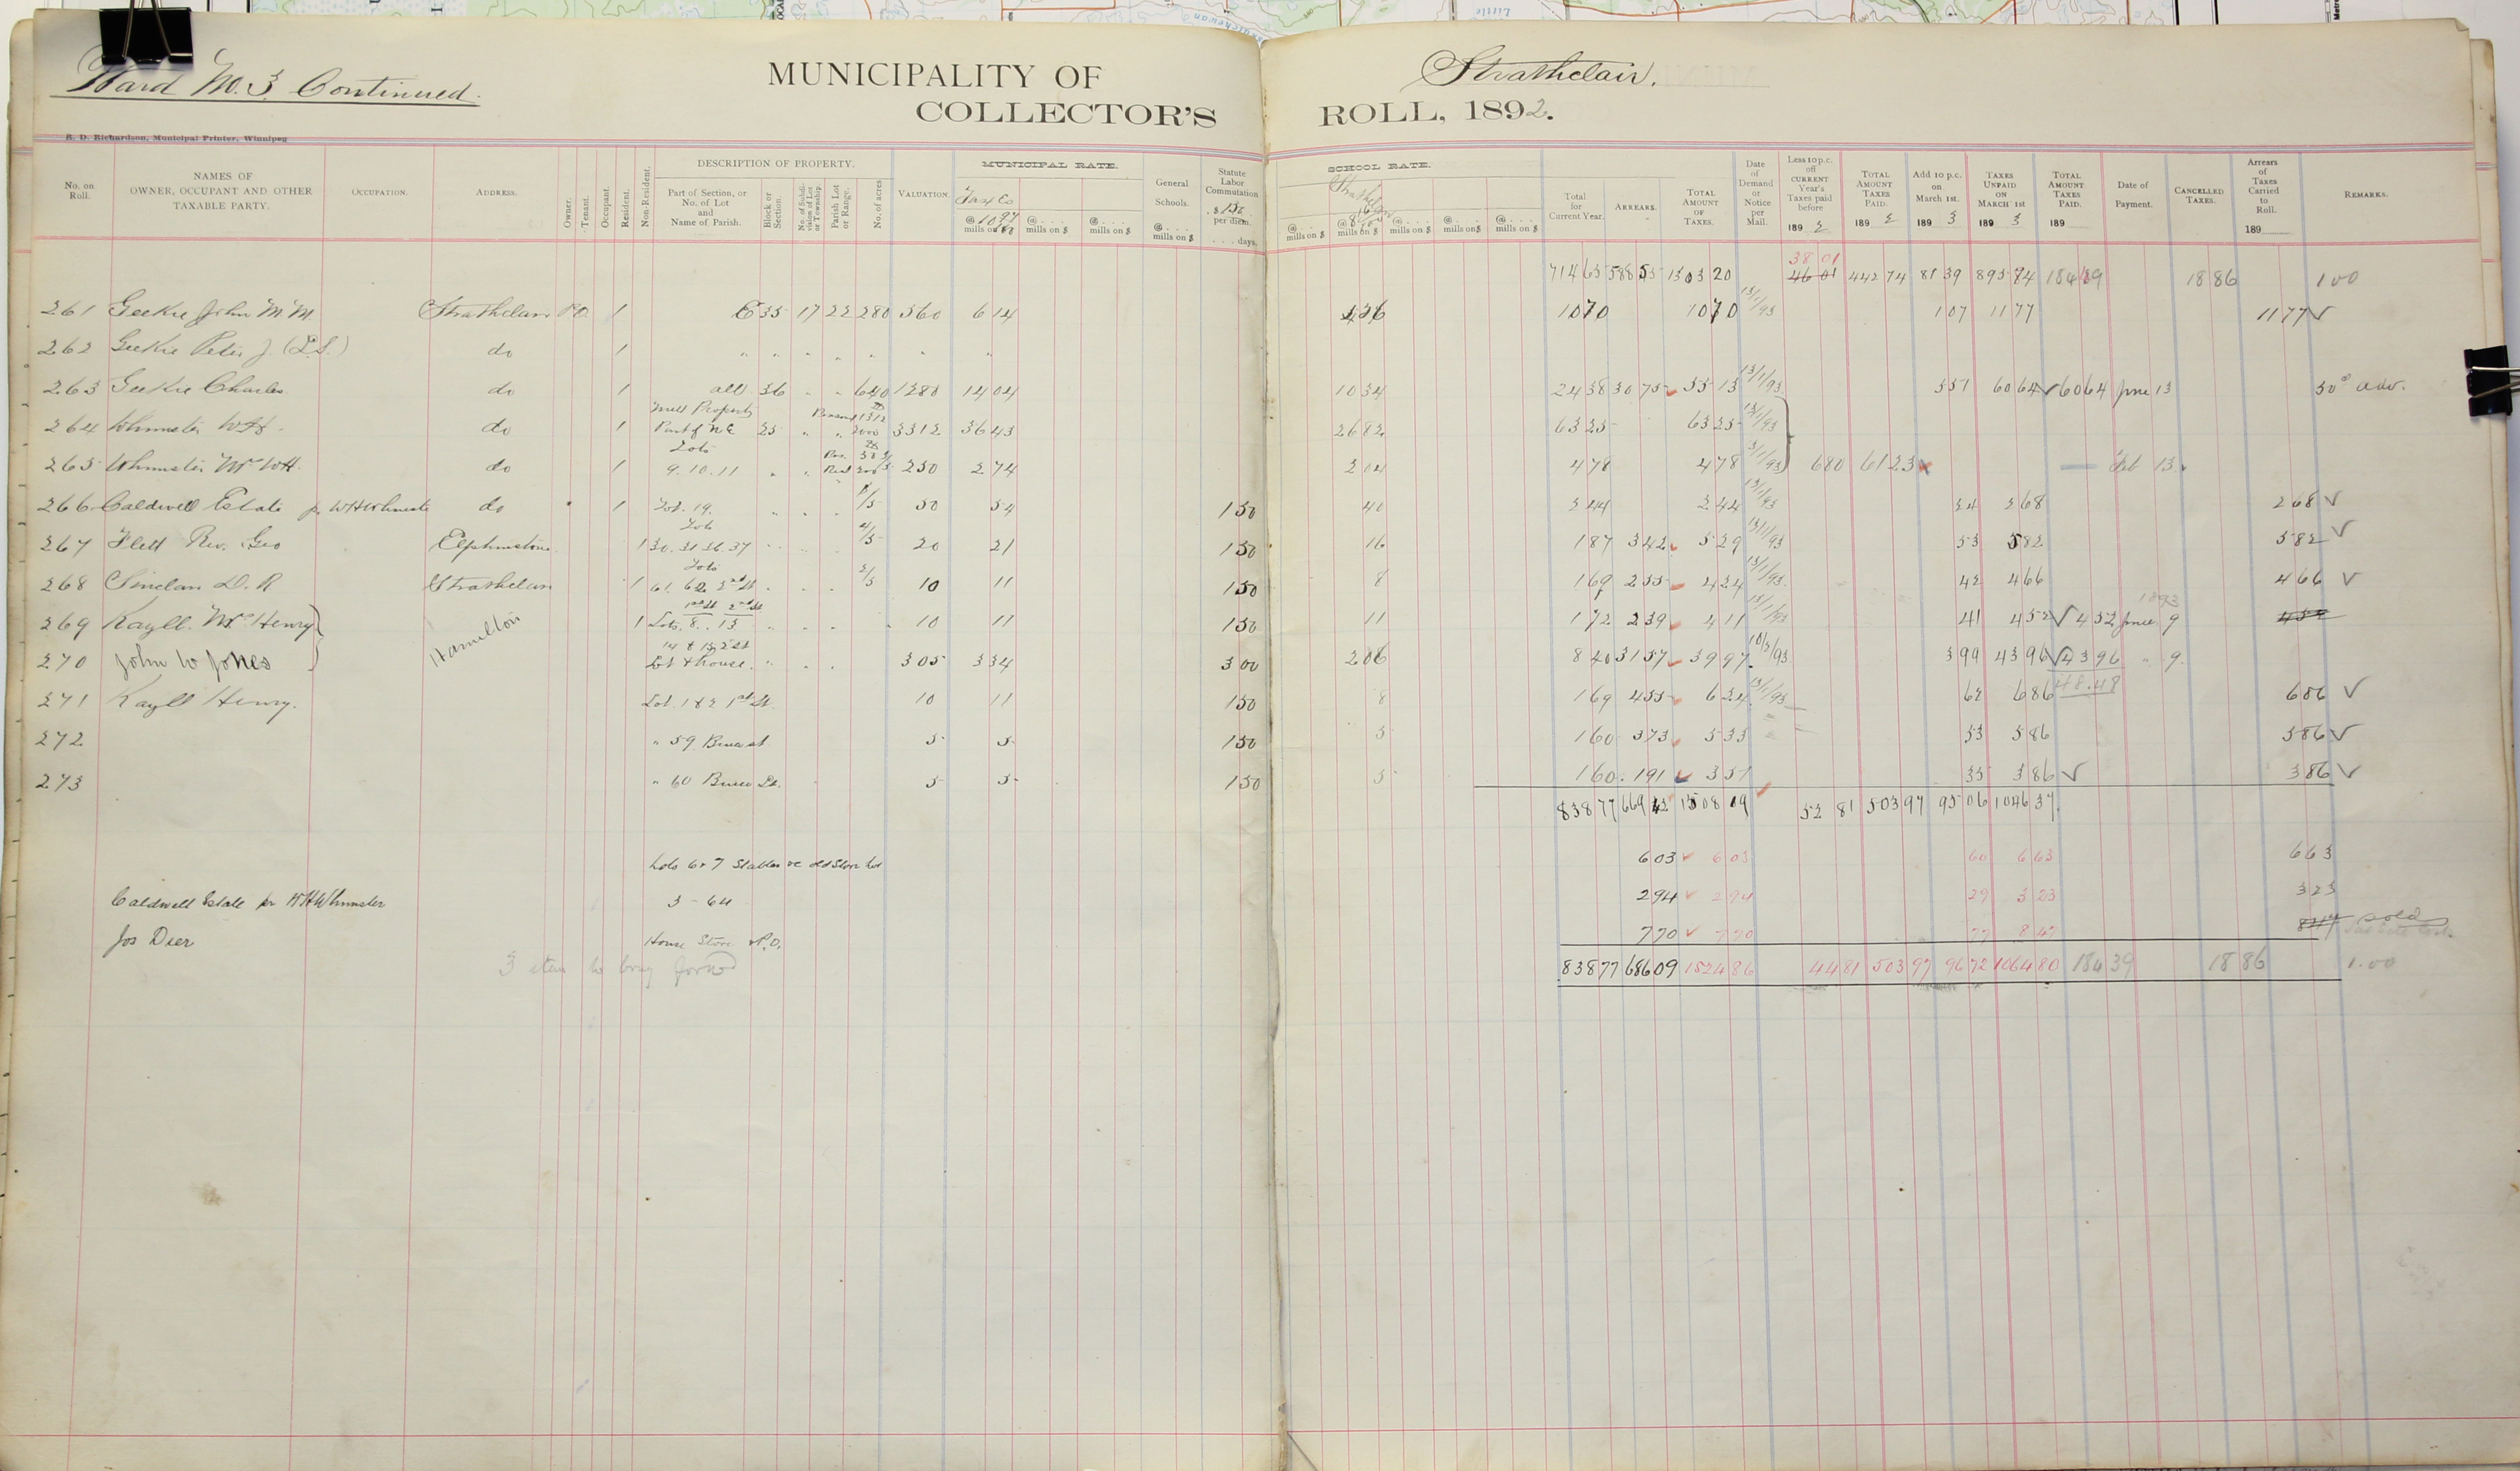 Ward No. 3 Continued.
MUNICIPALITY OF Strathclair.
COLLECTOR'S ROLL, 1892.
R. D. Richardson, Municipal Printer, Winnipeg
No. on Roll. NAMES OF OWNER, OCCUPANT AND OTHER TAXABLE PARTY. OCCUPATION. ADDRESS. Owner. Tenant. Occupant. Resident. Non-Resident. DESCRIPTION OF PROPERTY. Part of Section, or No. of Lot and Name of Parish. Block or Section. No. of Subdivision of Lot or Township. Parish Lot or Range. No. of acres VALUATION. MUNICIPAL RATE. Taxes @ mills on $ @ mills on $ @ mills on $ General Schools. @ mills on $ Statute Labor Commutation. $ 150 per diem. days.
SCHOOL RATE. @ mills on $ @ mills on $ @ mills on $ @ mills on $ @ mills on $ Total for Current Year. ARREARS. TOTAL AMOUNT OF TAXES. Date of Demand or Notice per Mail. Less 10 p.c. off CURRENT Year's Taxes paid before 189 2 TOTAL AMOUNT TAXES PAID. 189 2 Add 10 p.c. on March 1st. 189 3 TAXES UNPAID ON MARCH 1st 189 3 TOTAL AMOUNT TAXES PAID. 189 Date of Payment. CANCELLED TAXES. Arrears of Taxes Carried to Roll. 189 REMARKS.
38 01
714 65 588 55 1303 20 46 01 442 74 81 39 895 84 18 86 1 00
261 Geekie John M. M. Strathclair PO 1 E 35 17 22 280 560 6 14 10 70 10 70 13/1/93 1 07 11 77 11 77 ✓
262 Geekie Peter J. (P.S.) do 1 " " " " " " "
263 Geekie Charles do 1 all 36 " " 640 1280 14 04 10 34 24 38 30 75 55 13 13/1/93 5 51 60 64 ✓ 60 64 June 13 50° adv.
Mill Property
264 Whimster W H. do 1 Part of N E 25 " " 2000 3312 36 43 26 82 63 25 63 25 13/1/93
Lots
265 Whimster Mrs W H. do 1 9. 10. 11 " " 250 2 74 2 04 4 78 4 78 13/1/93 6 80 61 23 Feb 13
266 Caldwell Estate pr W H Whimster do 1 Lot. 19. " " " 1/5 50 54 1 50 40 2 44 2 44 13/1/93 24 2 68 2 68 ✓
Lots
267 Flett Rev. Geo Elphinstone 1 30. 31 36. 37 4/5 20 21 1 50 16 1 87 3 42 5 29 13/1/93 53 5 82 5 82 ✓
Lots
268 Sinclair D. R Strathclair 1 61. 62 2nd St 2/5 10 11 1 50 8 1 69 2 55 4 24 13/1/93 42 4 66 4 66 ✓
1st St 2nd St 1893
269 Kayll. Mrs Henry Hamilton 1 Lots. 8. . 13 10 11 1 50 11 1 72 2 39 4 11 41 4 52 ✓ 4 52 June 9 4 52
270 John W Jones Lot & house. 305 3 34 3 00 2 06 8 40 31 57 39 97 3 99 43 96 ✓ 43 96 " 9.
48.48
271 Kayll Henry. Lot. 1 & 2 1st St. 10 11 1 50 8 1 69 4 55 6 24 13/1/93 62 6 86 6 86 ✓
272 " 59 Bruce st. 5 5 1 50 5 1 60 3 73 5 33 53 5 86 5 86 ✓
273 " 60 Bruce St. 5 5 1 50 5 1 60 1 91 3 51 35 3 86 ✓ 3 86 ✓
838 77 669 42 1508 19 52 81 503 97 95 06 1046 37
Lots 6 & 7 Stables re old Store Lot 6 03 6 03 60 6 63 6 63
Caldwell Estate pr W H Whimster 3 - 64 2 94 2 94 29 3 23 3 23
Jos Dier House Store & P.O. 7 70 7 70 77 8 47 8 47 sold
3 items to bring forward
838 77 686 09 1524 86 44 81 503 97 96 72 1064 80 184 39 18 86 1.00